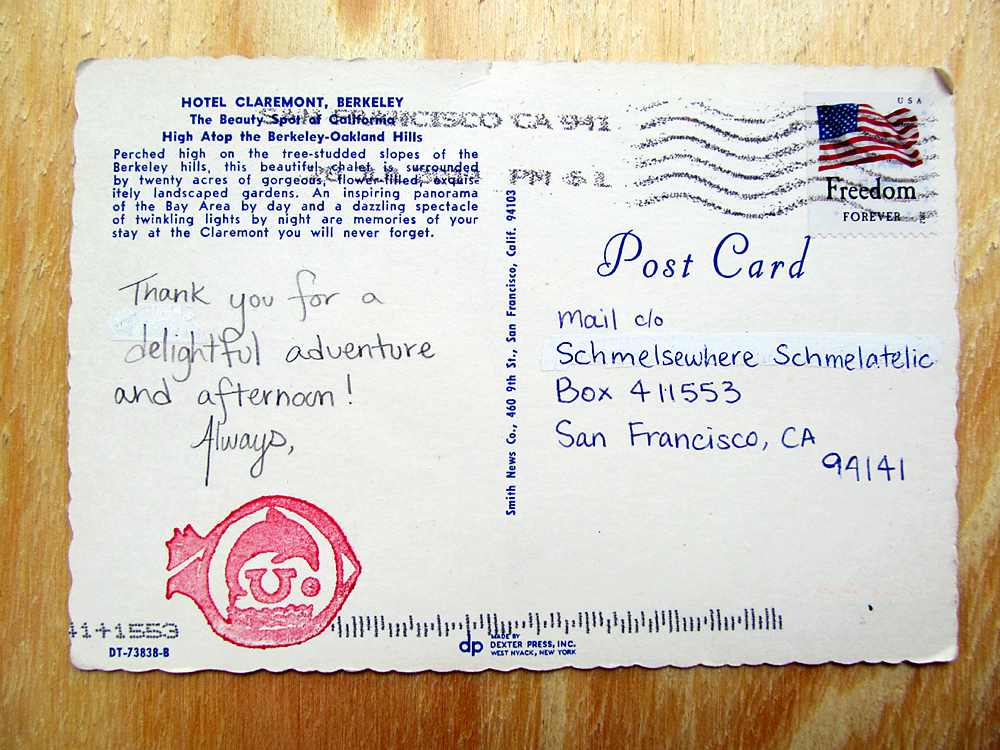 HOTEL CLAREMONT, BERKELEY
The Beauty Spot of California
High Atop the Berkeley-Oakland Hills
Perched high on the tree-studded slopes of the
Berkeley hills, this beautiful chalet is surrounded
by twenty acres of gorgeous, flower-filled, exquis-
itely landscaped gardens. An inspiring panorama
of the Bay Area by day and a dazzling spectacle
of twinkling lights by night are memories of your
stay at the Claremont you will never forget.
SAN FRANCISCO CA 941
PM 6 L
USA
Freedom
FOREVER
Thank you for a
delightful adventure
and afternoon!
Always,
U.
41+1553
DT-73838-B
Smith News Co., 460 9th St., San Francisco, Calif. 94103
dp
MADE BY
DEXTER PRESS, INC.
WEST NYACK, NEW YORK
Post Card
Mail c/o
Schmelsewhere Schmelatelic
Box 411553
San Francisco, CA
94141